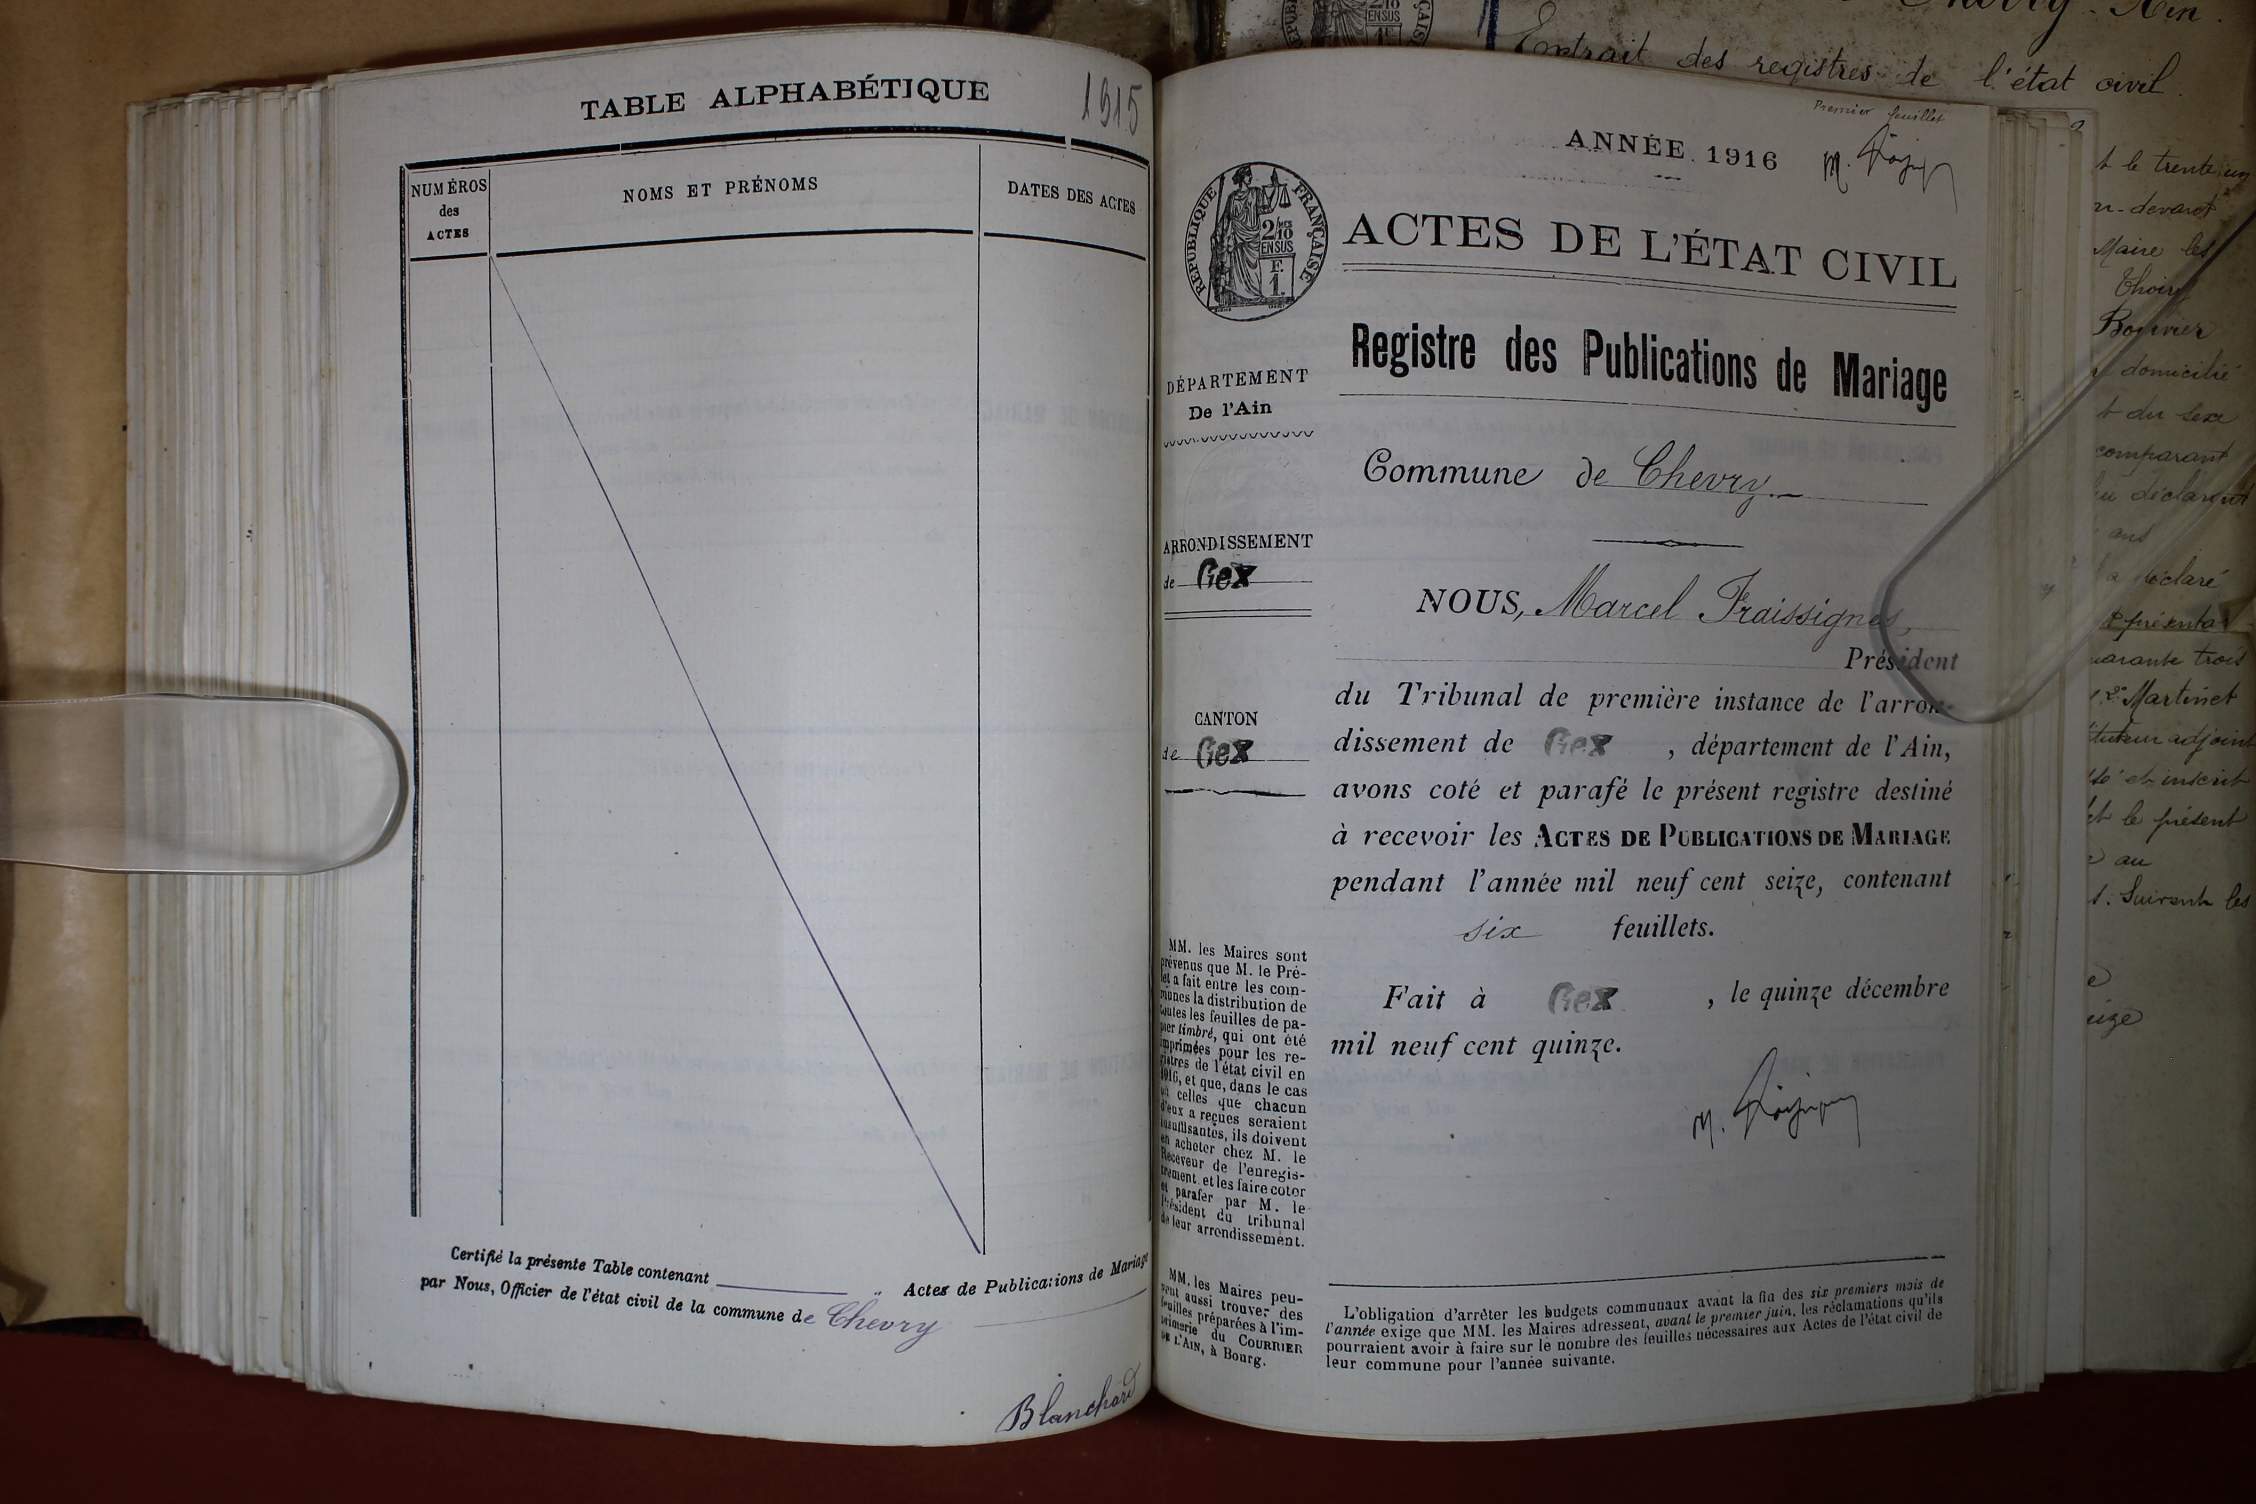 TABLE ALPHABÉTIQUE
1915
NUMÉROS
des
ACTES
NOMS ET PRÉNOMS
DATES DES ACTES
Certifié la présente Table contenant " Actes de Publications de Mariage
par Nous, Officier de l'état civil de la commune de Chevry
Blanchard
Premier feuillet
ANNÉE 1916
RÉPUBLIQUE FRANÇAISE
2/10
EN SUS
F.
1.
ACTES DE L'ÉTAT CIVIL
Registre des Publications de Mariage
DÉPARTEMENT
De l'Ain
Commune de Chevry
ARRONDISSEMENT
de Gex
NOUS, Marcel Fraissignes,
Président
du Tribunal de première instance de l'arron-
dissement de Gex, département de l'Ain,
avons coté et parafé le présent registre destiné
à recevoir les ACTES DE PUBLICATIONS DE MARIAGE
pendant l'année mil neuf cent seize, contenant
six feuillets.
Fait à Gex, le quinze décembre
mil neuf cent quinze.
CANTON
de Gex
MM. les Maires sont
prévenus que M. le Pré-
fet a fait entre les com-
munes la distribution de
toutes les feuilles de pa-
pier timbré, qui ont été
imprimées pour les re-
gistres de l'état civil en
1916, et que, dans le cas
où celles que chacun
d'eux a reçues seraient
insuffisantes, ils doivent
en acheter chez M. le
Receveur de l'enregis-
trement et les faire coter
et parafer par M. le
Président du tribunal
de leur arrondissement.
MM. les Maires peu-
vent aussi trouver des
feuilles préparées à l'im-
primerie du COURRIER
DE L'AIN, à Bourg.
L'obligation d'arrêter les budgets communaux avant la fin des six premiers mois de
l'année exige que MM. les Maires adressent, avant le premier juin, les réclamations qu'ils
pourraient avoir à faire sur le nombre des feuilles nécessaires aux Actes de l'état civil de
leur commune pour l'année suivante.
Extrait des registres de l'état civil.
t le trente un
devant
Maire les
Thoiry
Bouvier
domicilié
t du sexe
comparant
déclarant
ans
a déclaré
présenta
quarante trois
2° Martinet
adjoint
et inscrit
et le présent
au
Suivent les